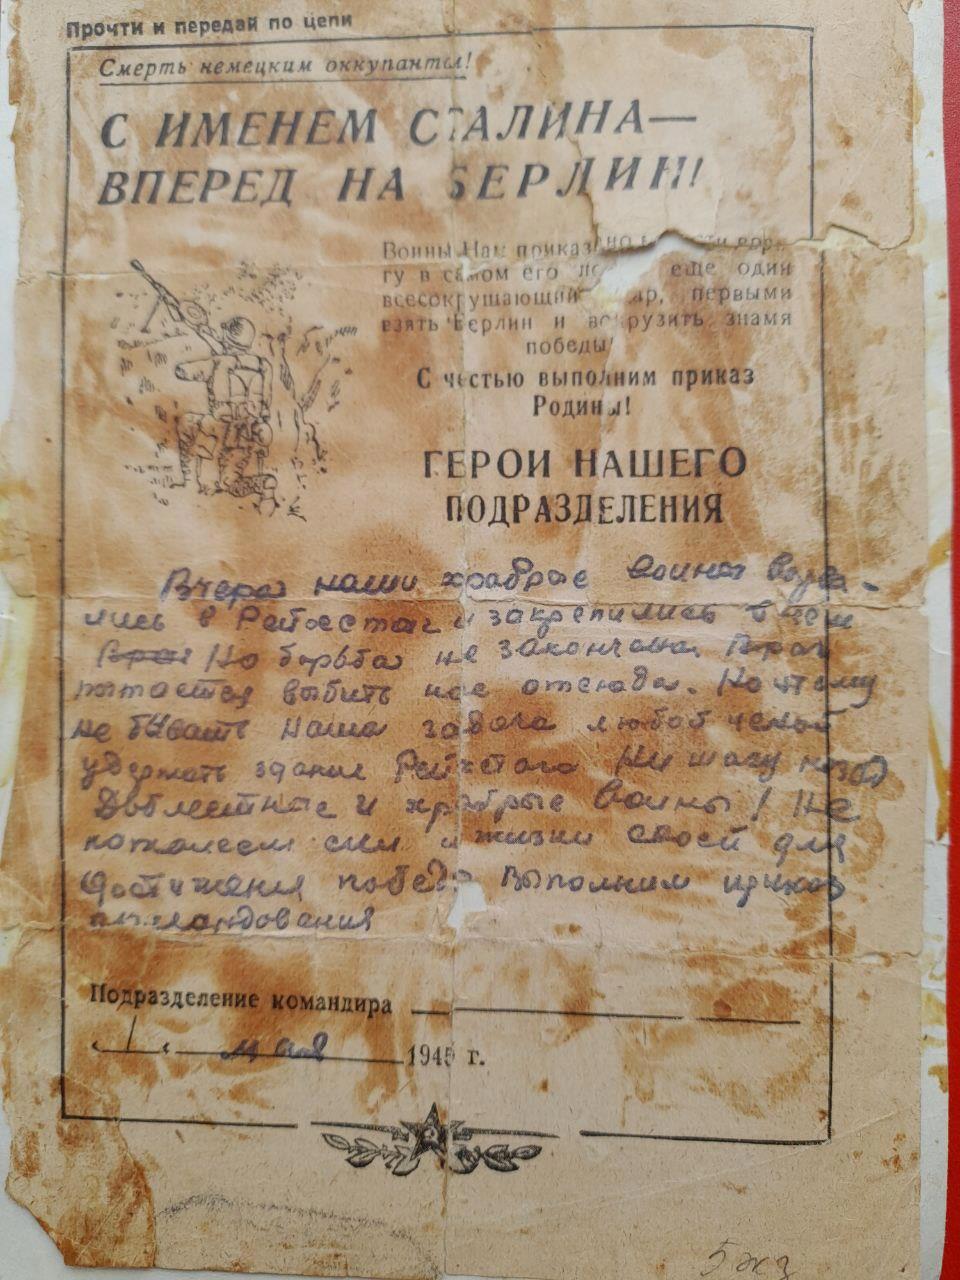 Прочти и передай по цепи
Смерть немецким оккупантам!
С ИМЕНЕМ СТАЛИНА—
ВПЕРЕД НА БЕРЛИН!
Воины! Нам приказано
гу в самом его еще один
всесокрушающий удар, первыми
взять Берлин и водрузить знамя
победы!
С честью выполним приказ
Родины!
ГЕРОИ НАШЕГО
ПОДРАЗДЕЛЕНИЯ
Вчера наши храбрые воины ворва-
лись в Рейхстаг и закрепились в нем
Но борьба не закончена Враг
пытается выбить нас отсюда. Но этому
не бывать Наша задача любой ценой
удержать здание Рейхстага Ни шагу назад
Доблестные и храбрые воины! Не
пожалеем сил и жизни своей для
достижения победы Выполним приказ
командования
Подразделение командира
"1" мая 1945 г.
5 экз